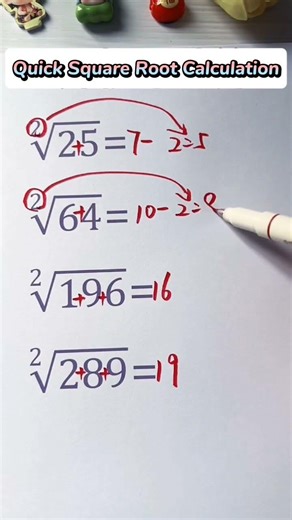 Quick Square Root Calculation
²√25=7-2=5
²√64=10-2=8
²√196=16
²√289=19